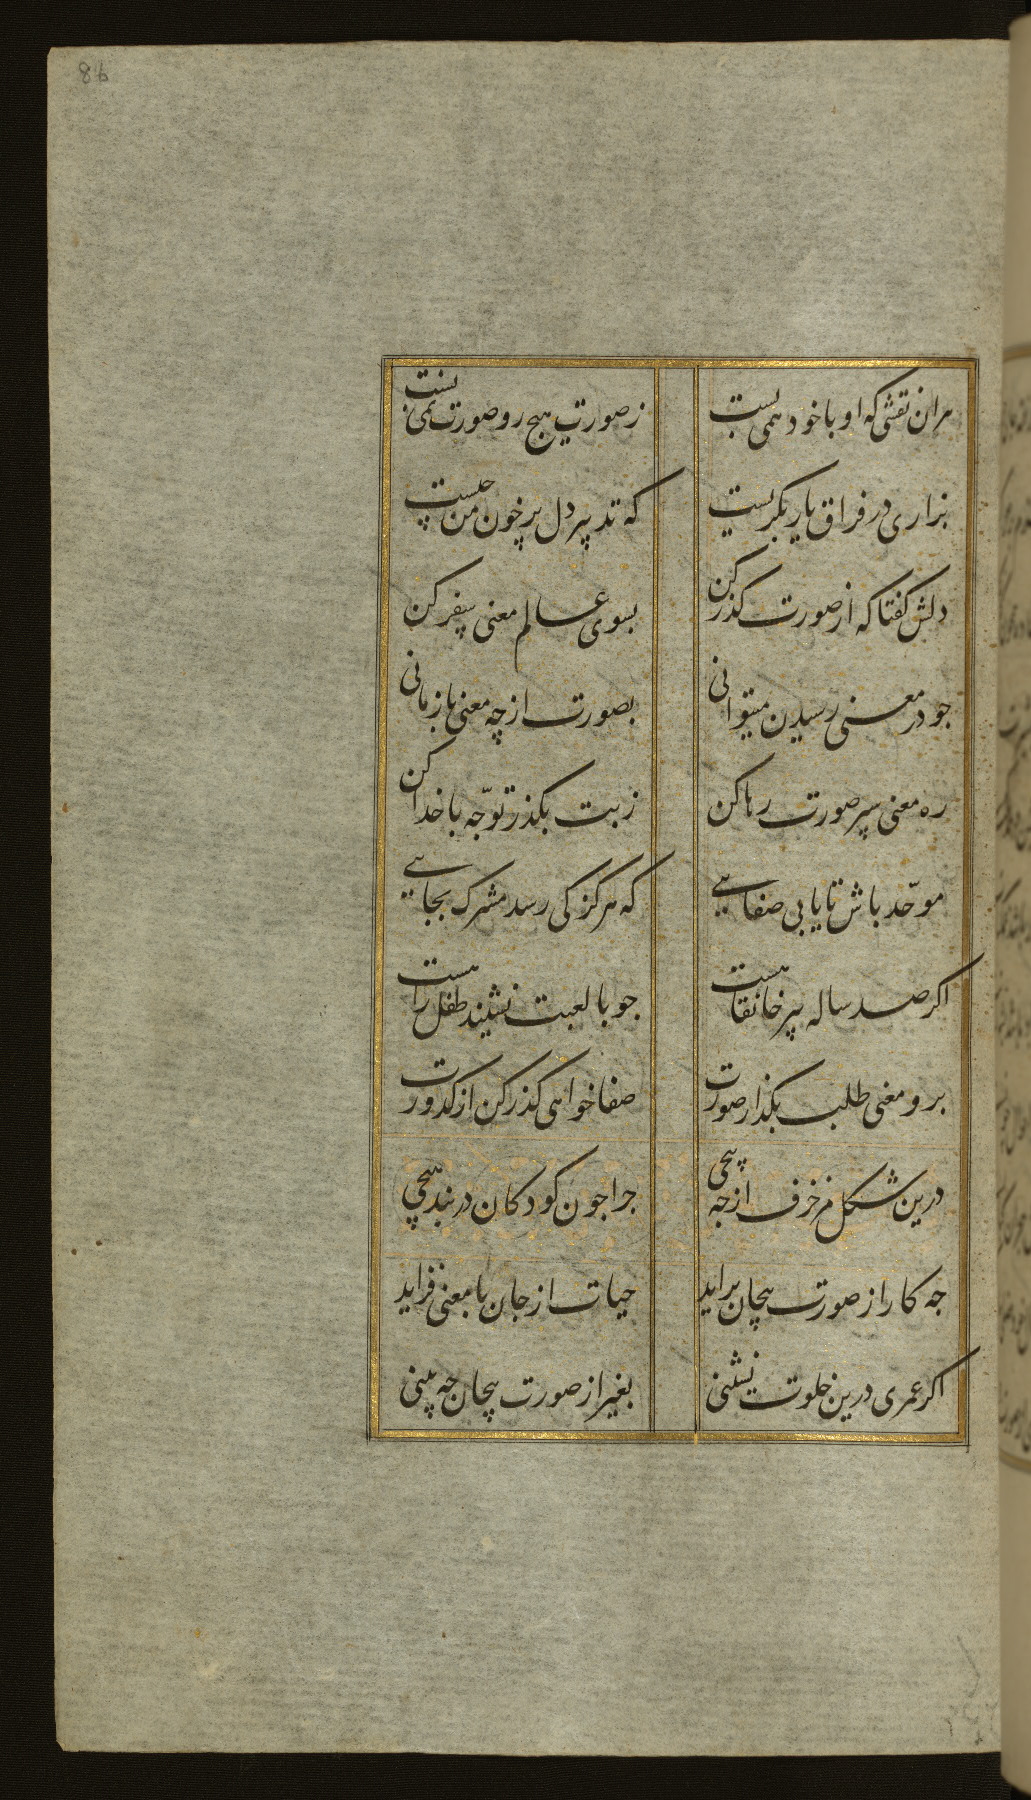 86
هران نقشی که او با خود همی بست
ز صورت هیچ رو صورت نمی بست
بزاری در فراق یار بگریست
که تدبیر دل پر خون من چیست
دلش گفتا که از صورت گذر کن
بسوی عالم معنی سفر کن
جو در معنی رسیدن میتوانی
بصورت از چه معنی باز مانی
ره معنی سپر صورت رها کن
ز بت بگذر توجّه با خدا کن
موحّد باش تا یابی صفایی
که هرگز کی رسد مشرک بجایی
اگر صد ساله پیر خانقاهست
جو با لعبت نشیند طفل راهست
برو معنی طلب بگذار صورت
صفا خواهی گذر کن از کدورت
درین شکل مزخرف از جه پیچی
جرا جون کودکان در بند هیچی
جه کار از صورت بیجان براید
حیات از جان با معنی فزاید
اگر عمری درین خلوت نشینی
بغیر از صورت بیجان جه بینی